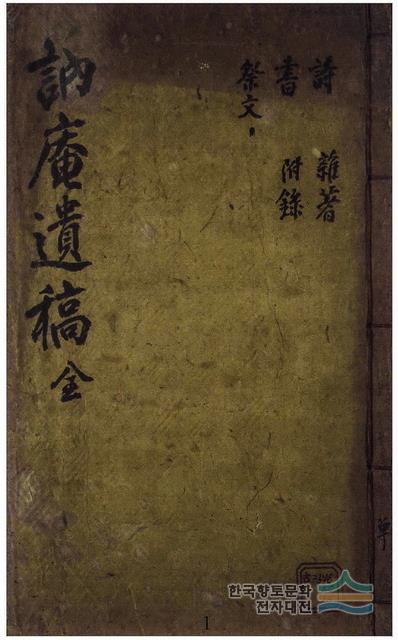 詩 雜著
書 附錄
祭文
訥庵遺稿 全
單
한국향토문화
전자대전
1